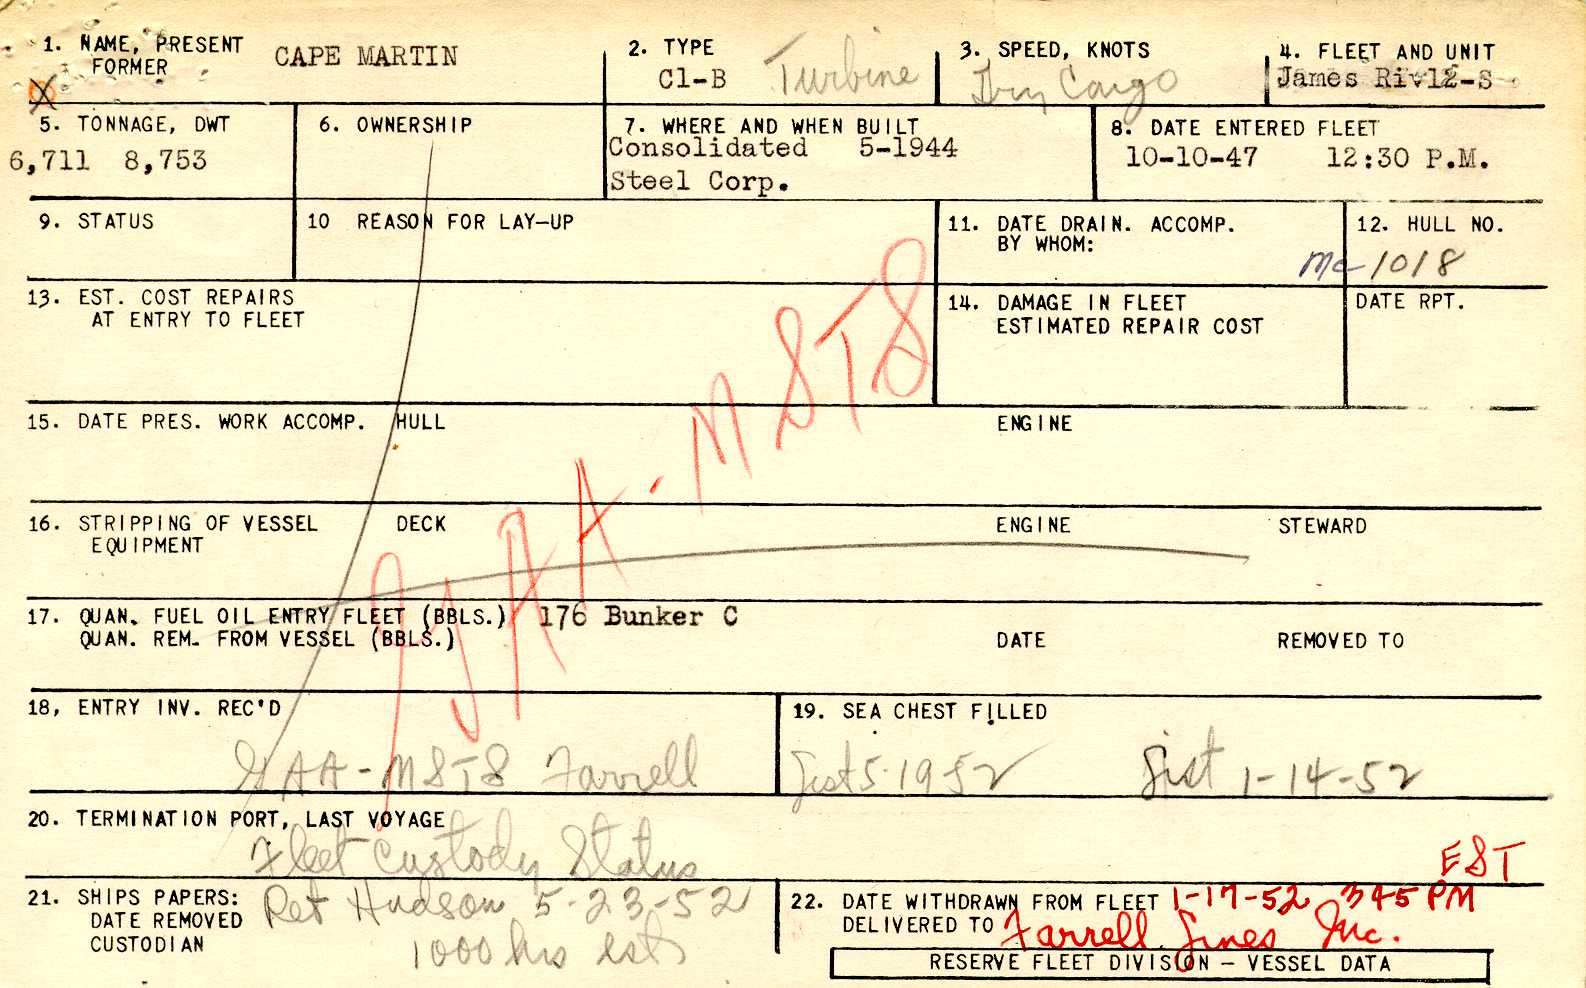 1. NAME, PRESENT CAPE MARTIN
FORMER
2. TYPE
C1-B Turbine
3. SPEED, KNOTS
Dry Cargo
4. FLEET AND UNIT
James Riv12-S
5. TONNAGE, DWT
6,711 8,753
6. OWNERSHIP
7. WHERE AND WHEN BUILT
Consolidated 5-1944
Steel Corp.
8. DATE ENTERED FLEET
10-10-47 12:30 P.M.
9. STATUS
10 REASON FOR LAY-UP
11. DATE DRAIN. ACCOMP.
BY WHOM:
12. HULL NO.
Mc-1018
13. EST. COST REPAIRS
AT ENTRY TO FLEET
14. DAMAGE IN FLEET
ESTIMATED REPAIR COST
DATE RPT.
GAA-MSTS
15. DATE PRES. WORK ACCOMP. HULL ENGINE
16. STRIPPING OF VESSEL DECK ENGINE STEWARD
EQUIPMENT
17. QUAN. FUEL OIL ENTRY FLEET (BBLS.) 176 Bunker C
QUAN. REM. FROM VESSEL (BBLS.) DATE REMOVED TO
18, ENTRY INV. REC'D
GAA-MSTS Farrell
19. SEA CHEST FILLED
5-1952 1-14-52
20. TERMINATION PORT, LAST VOYAGE
Fleet Custody Status
EST
21. SHIPS PAPERS: Ret Hudson 5-23-52
DATE REMOVED 1000 hrs est
CUSTODIAN
22. DATE WITHDRAWN FROM FLEET 1-17-52 345 PM
DELIVERED TO Farrell Lines Inc.
RESERVE FLEET DIVISION – VESSEL DATA